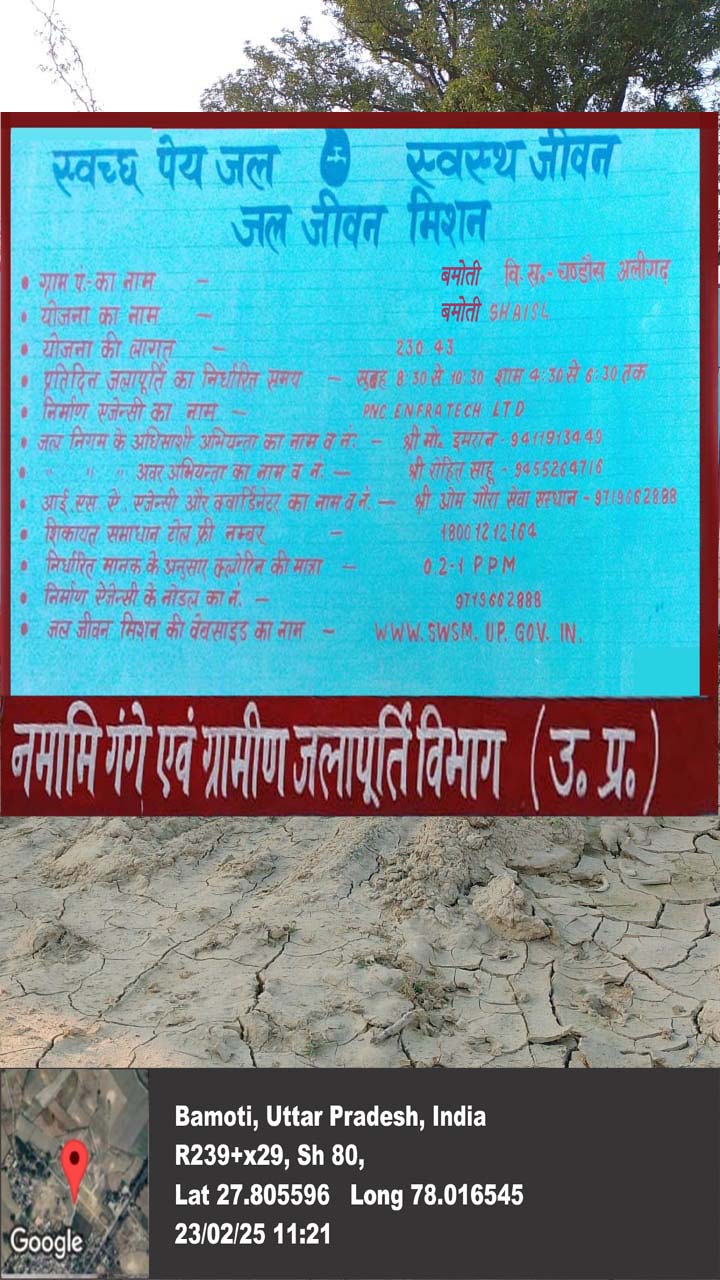 स्वच्छ पेय जल स्वस्थ जीवन
जल जीवन मिशन
• ग्राम पं.-का नाम - बमोती वि.ख.- चण्डौस अलीगढ़
• योजना का नाम - बमोती SHAISL
• योजना की लागत - 230.43
• प्रतिदिन जलापूर्ति का निर्धारित समय - सुबह 8:30 से 10:30 शाम 4:30 से 6:30 तक
• निर्माण एजेन्सी का नाम - PNC ENFRATECH LTD
• जल निगम के अधिसाशी अभियन्ता का नाम व नं: - श्री मो. इमरान - 9411913449
• " " " अवर अभियन्ता का नाम व नं. - श्री रोहित साहू - 9455264716
• आई एस ए. एजेन्सी और क्वार्डिनेटर का नाम व नं. - श्री ओम गौरा सेवा संस्थान - 9719662888
• शिकायत समाधान टोल फ्री नम्बर - 18001212164
• निर्धारित मानक के अनुसार क्लोरिन की मात्रा - 0.2-1 PPM
• निर्माण ऐजेन्सी के नोडल का नं. - 9719662888
• जल जीवन मिशन की वेबसाइड का नाम - WWW.SWSM.UP.GOV.IN.
नमामि गंगे एवं ग्रामीण जलापूर्ति विभाग (उ. प्र.)
Bamoti, Uttar Pradesh, India
R239+x29, Sh 80,
Lat 27.805596 Long 78.016545
23/02/25 11:21
Google